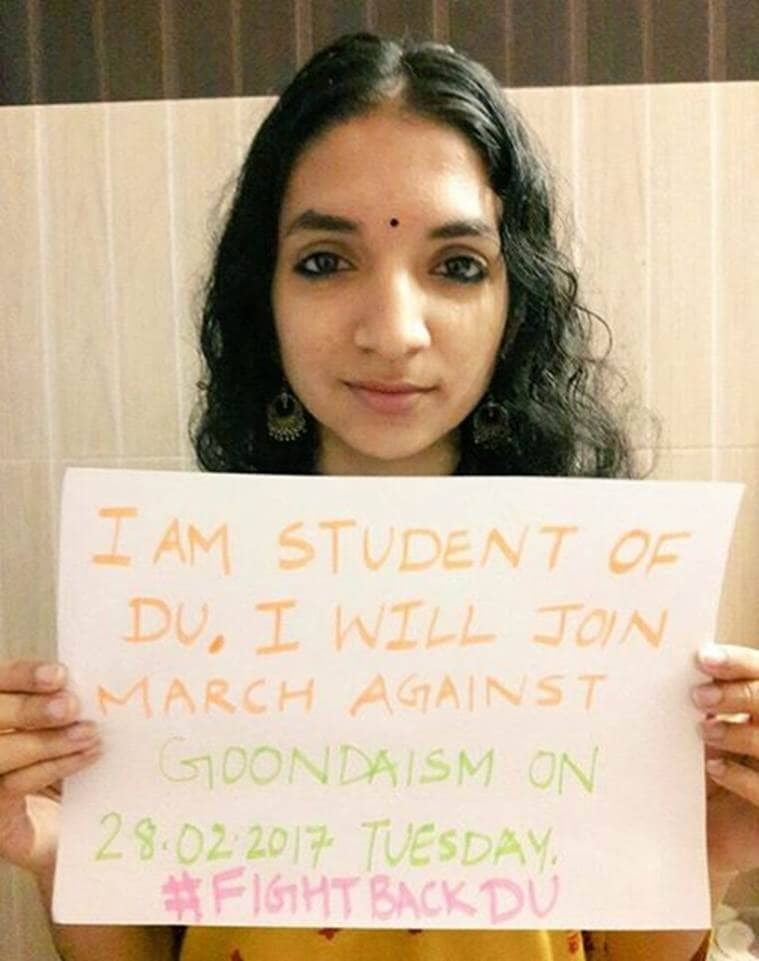 I AM STUDENT OF
DU. I WILL JOIN
MARCH AGAINST
GOONDAISM ON
28.02.2017 TUESDAY.
#FIGHTBACKDU